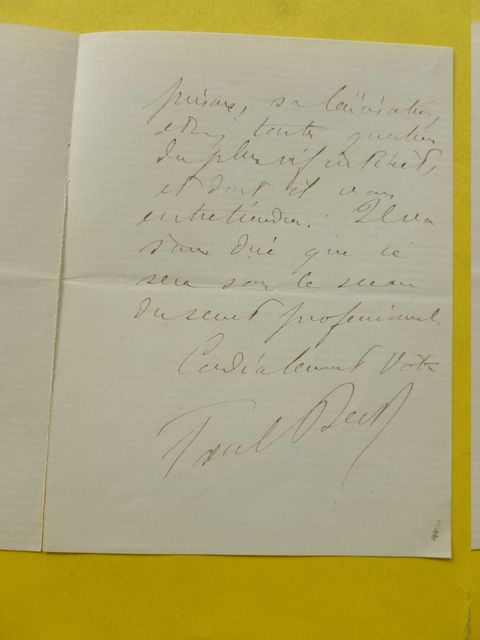 sa laïcisation,
etc., toutes questions
du plus vif intérêt,
et dont il vous
entretiendra. Il va
sans dire que ce
sera sous le sceau
du secret professionnel.
Cordialement Votre
Paul Bert